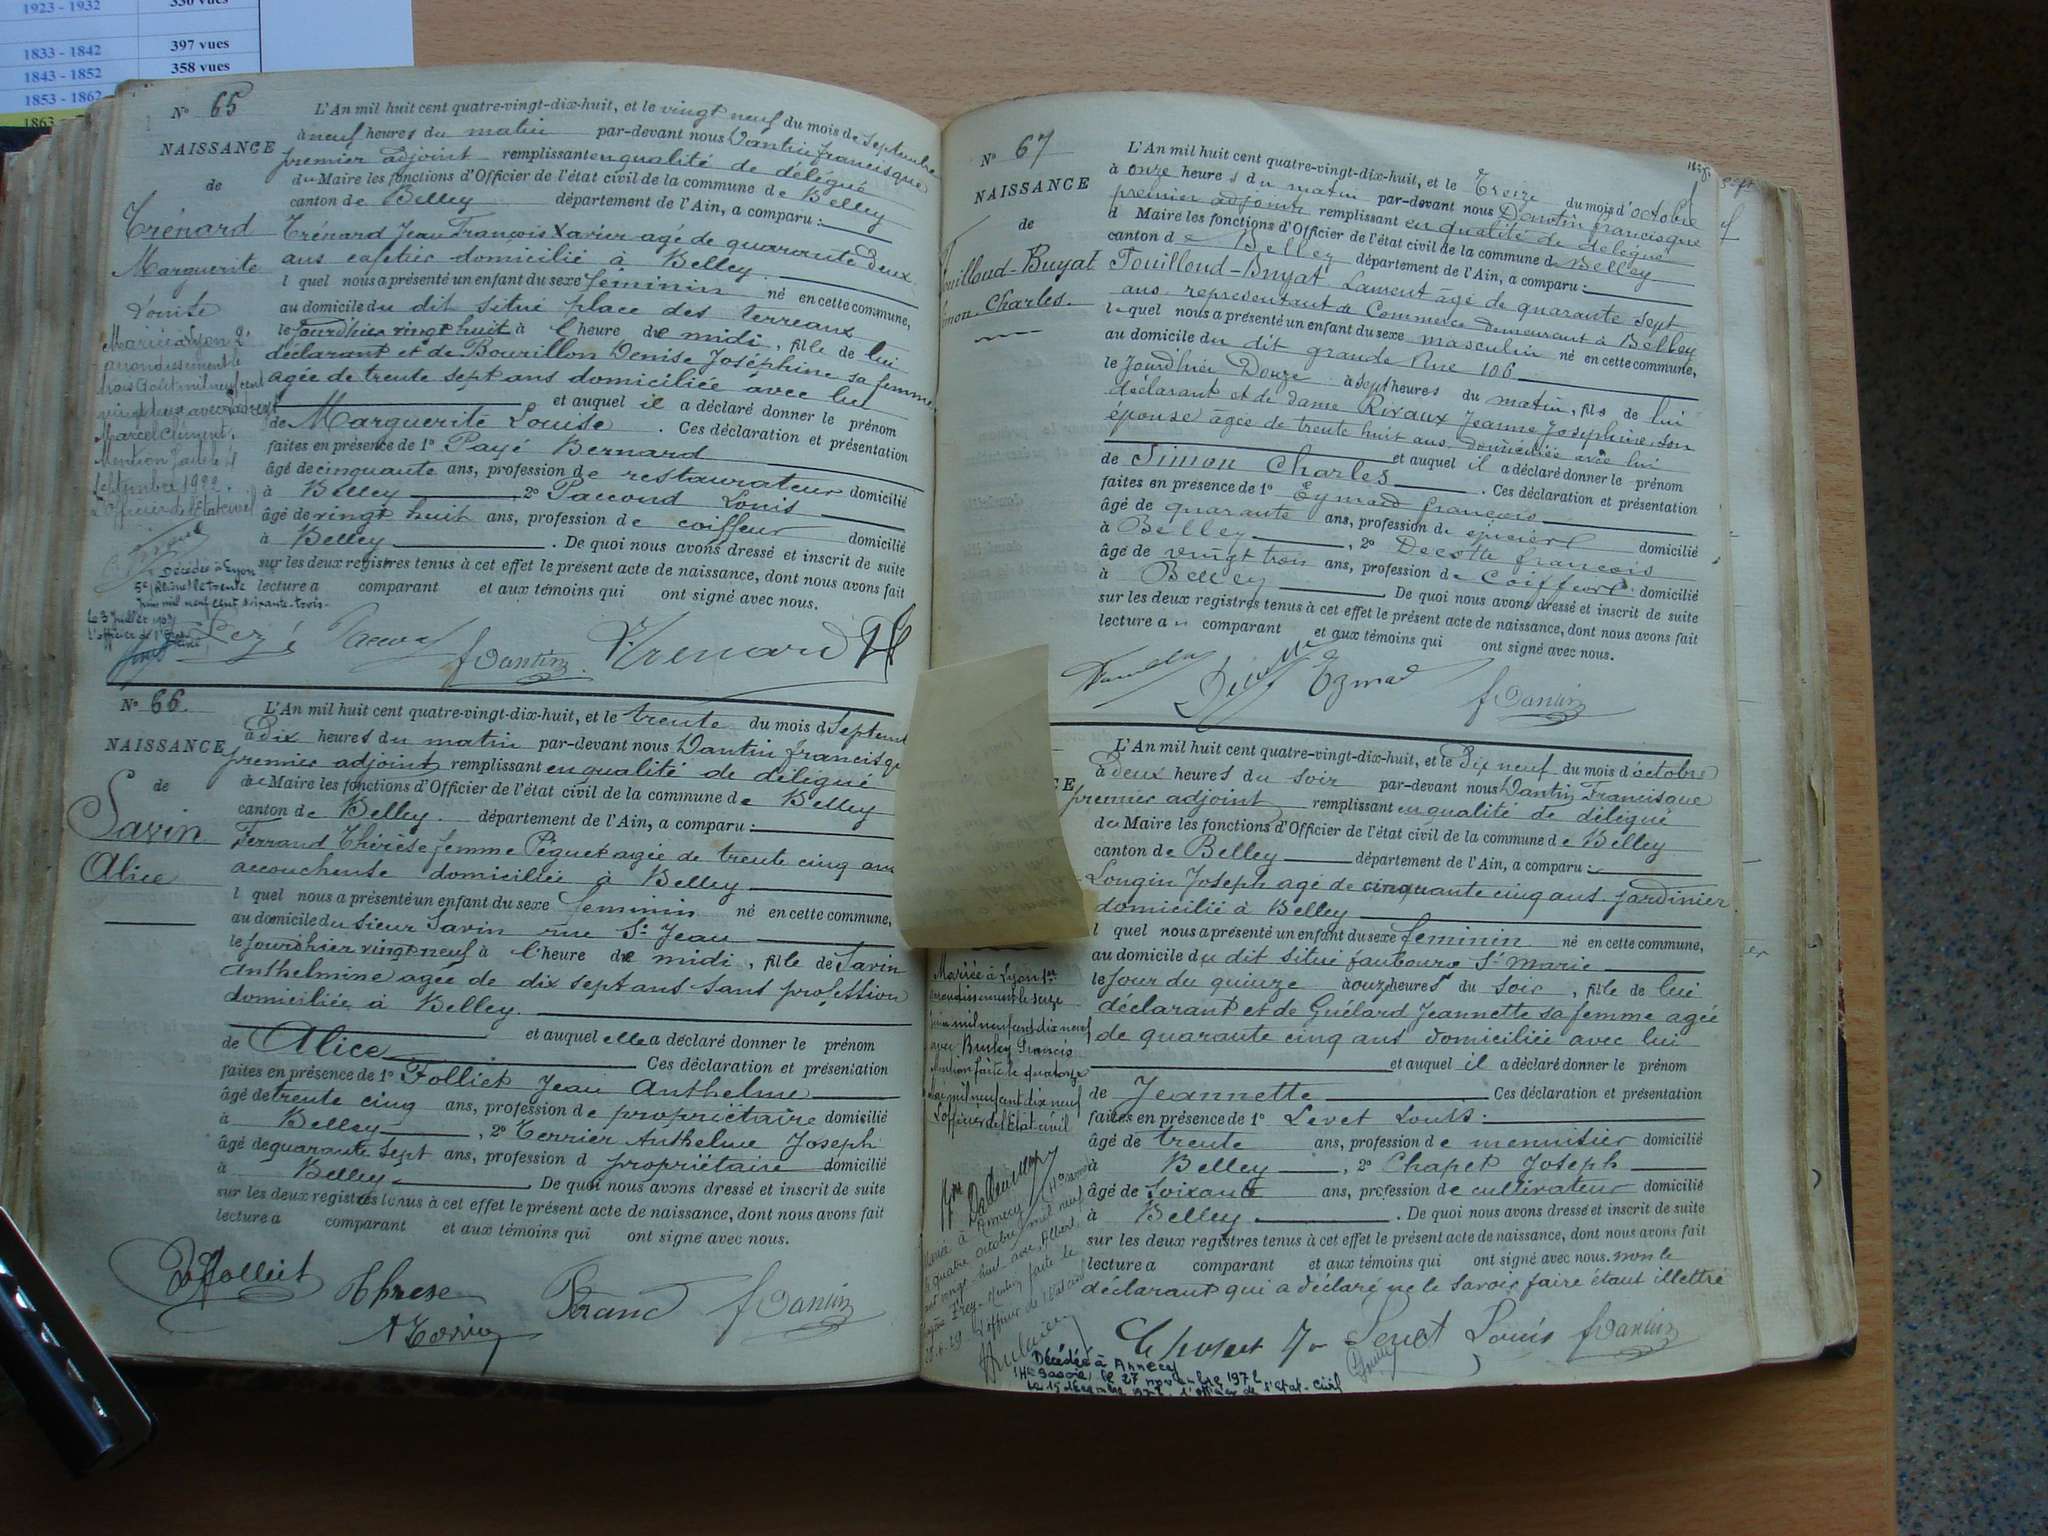 1923 - 1932 350 vues
1833 - 1842 397 vues
1843 - 1852 358 vues
1853 - 1862
1863
N° 65
NAISSANCE
de
Trénard
Marguerite
Louise
Mariée à Lyon 2e
arrondissement le
trois Août mil neuf cent
vingt deux avec
Marcel Clément.
Mention faite le 4
Septembre 1922.
L'officier de l'Etat civil
Décédée à Lyon
5e (Rhône) le trente
juin mil neuf cent soixante-trois
Le 3 Juillet 1963
L'officier de l'Etat
Civil,
L'An mil huit cent quatre-vingt-dix-huit, et le vingt neuf du mois de Septembre
à neuf heures du matin par-devant nous Dantin francisque
premier adjoint remplissant en qualité de délégué
du Maire les fonctions d'Officier de l'état civil de la commune de Belley
canton de Belley département de l'Ain, a comparu :
Trénard Jean François Xavier agé de quarante deux
ans cafetier domicilié à Belley
l quel nous a présenté un enfant du sexe féminin né en cette commune,
au domicile du dit situé place des terreaux
le jourdhier vingt huit à l'heure de midi, fille de lui
déclarant et de Bourillon Denise Joséphine sa femme
agée de trente sept ans domiciliée avec lui
et auquel il a déclaré donner le prénom
de Marguerite Louise . Ces déclaration et présentation
faites en présence de 1° Payé Bernard
âgé de cinquante ans, profession de restaurateur domicilié
à Belley , 2° Paccoud Louis
âgé de vingt huit ans, profession de coiffeur domicilié
à Belley . De quoi nous avons dressé et inscrit de suite
sur les deux registres tenus à cet effet le présent acte de naissance, dont nous avons fait
lecture a comparant et aux témoins qui ont signé avec nous.
fDantin Trenard
N° 66
NAISSANCE
de
Savin
Alice
L'An mil huit cent quatre-vingt-dix-huit, et le trente du mois d Septem
à dix heures du matin par-devant nous Dantin francisq
premier adjoint remplissant en qualité de délégué
de Maire les fonctions d'Officier de l'état civil de la commune de Belley
canton de Belley département de l'Ain, a comparu :
Ferrand Thérèse femme Péguet agée de trente cinq ans
accoucheuse domiciliée à Belley
l quel nous a présenté un enfant du sexe feminin né en cette commune,
au domicile du sieur Savin rue St Jean
le jourdhier vingt neuf à l'heure de midi, fille de Savin
Anthelmine agée de dix sept ans sans profession
domiciliée à Belley.
et auquel elle a déclaré donner le prénom
de Alice Ces déclaration et présentation
faites en présence de 1° Folliet Jean Anthelme
âgé de trente cinq ans, profession de propriétaire domicilié
à Belley , 2° Terrier Anthelme Joseph
âgé de quarante sept ans, profession d propriétaire domicilié
à Belley . De quoi nous avons dressé et inscrit de suite
sur les deux registres tenus à cet effet le présent acte de naissance, dont nous avons fait
lecture a comparant et aux témoins qui ont signé avec nous.
Folliet fDantin
N° 67
NAISSANCE
de
ouilloud-Buyat
imon Charles.
L'An mil huit cent quatre-vingt-dix-huit, et le Treize du mois d'octobre
à onze heures du matin par-devant nous Dantin francisque
premier adjoint remplissant en qualité de délégué
d Maire les fonctions d'Officier de l'état civil de la commune de Belley
canton de Belley département de l'Ain, a comparu :
Fouilloud-Buyat Laurent âgé de quarante sept
ans représentant de Commerce demeurant à Belley
lequel nous a présenté un enfant du sexe masculin né en cette commune,
au domicile du dit grande Rue 106
le Jourdhier Douze à sept heures du matin, fils de lui
déclarant et de dame Rivaux Jeanne Josephine, son
épouse âgée de trente huit ans domiciliée avec lui
et auquel il a déclaré donner le prénom
de Simon Charles . Ces déclaration et présentation
faites en présence de 1° Eymard françois
âgé de quarante ans, profession de épicier domicilié
à Belley , 2° françois
âgé de vingt trois ans, profession de Coiffeur domicilié
à Belley De quoi nous avons dressé et inscrit de suite
sur les deux registres tenus à cet effet le présent acte de naissance, dont nous avons fait
lecture a u comparant et aux témoins qui ont signé avec nous.
fDantin
CE
Mariée à Lyon 1er
arrondissement le seize
juin mil neuf cent dix neuf
avec Francis
Mention faite le quatorze
mil neuf cent dix neuf
L'officier de l'Etat civil
L'An mil huit cent quatre-vingt-dix-huit, et le Dix neuf du mois d'octobre
à deux heures du soir par-devant nous Dantin Francisque
premier adjoint remplissant en qualité de délégué
du Maire les fonctions d'Officier de l'état civil de la commune de Belley
canton de Belley département de l'Ain, a comparu :
Longin Joseph agé de cinquante cinq ans jardinier
domicilié à Belley
l quel nous a présenté un enfant du sexe feminin né en cette commune,
au domicile du dit situé faubourg St Marie
le jour du quinze à onze heures du soir, fille de lui
déclarant et de Guélard Jeannette sa femme agée
de quarante cinq ans domiciliée avec lui
et auquel il a déclaré donner le prénom
de Jeannette Ces déclaration et présentation
faites en présence de 1° Levet Louis
âgé de trente ans, profession de menuisier domicilié
à Belley , 2° Chapet Joseph
âgé de Soixante ans, profession de cultivateur domicilié
à Belley . De quoi nous avons dressé et inscrit de suite
sur les deux registres tenus à cet effet le présent acte de naissance, dont nous avons fait
lecture a comparant et aux témoins qui ont signé avec nous. non le
déclarant qui a déclaré ne le savoir faire étant illettré
Louis fDantin
Décédée à Annecy
(Hte Savoie) le 27 novembre 1972
l'officier de l'Etat-Civil